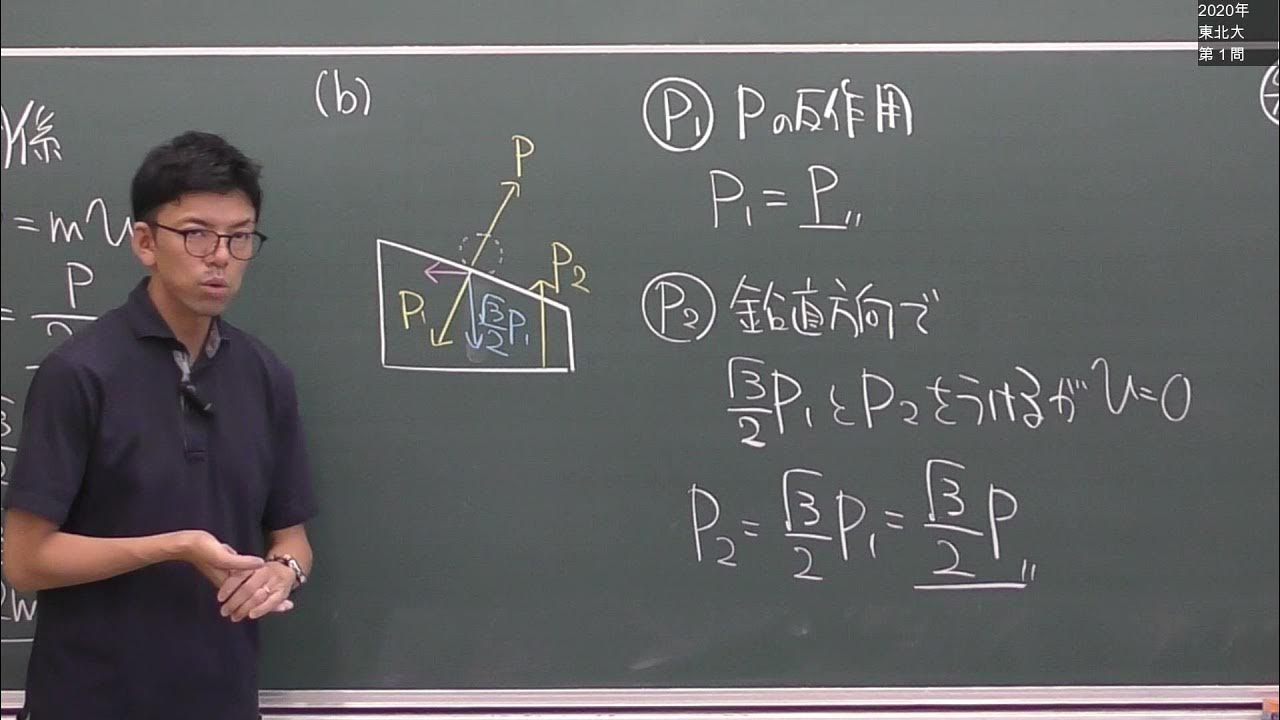 2020年
東北大
第1問
係
(b)
= mu
P
=
P
P₁
√3/2 P₁
P₂
P₁ Pの反作用
P₁ = P〃
P₂ 鉛直方向で
√3/2 P₁とP₂をうけるがU=0
P₂ = √3/2 P₁ = √3/2 P〃